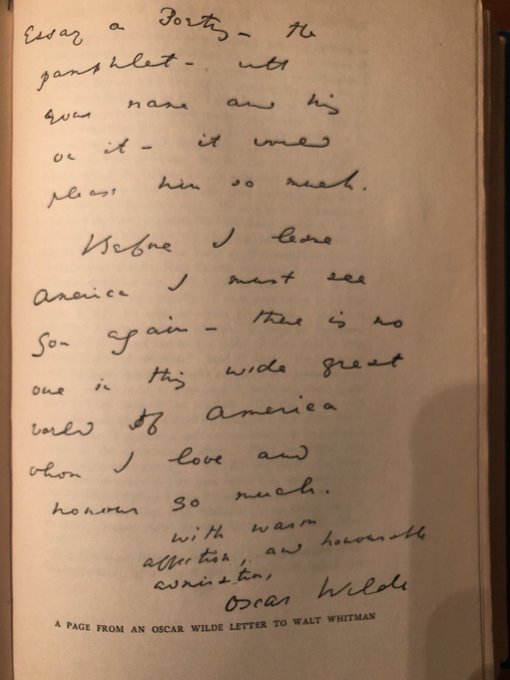 Essay on Poetry — the
pamphlet — with
your name and his
on it — it would
please him so much.
Before I leave
America I must see
you again — there is no
one in this wide great
world of America
whom I love and
honour so much.
With warm
affection, and honourable
admiration,
Oscar Wilde
A PAGE FROM AN OSCAR WILDE LETTER TO WALT WHITMAN